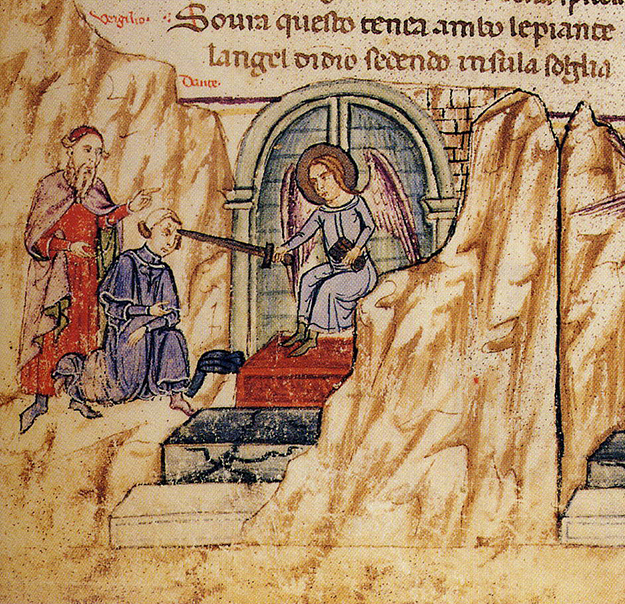 Vergilio
Soura questo tenea ambo le piante
langel didio sedendo insula soglia
Dante